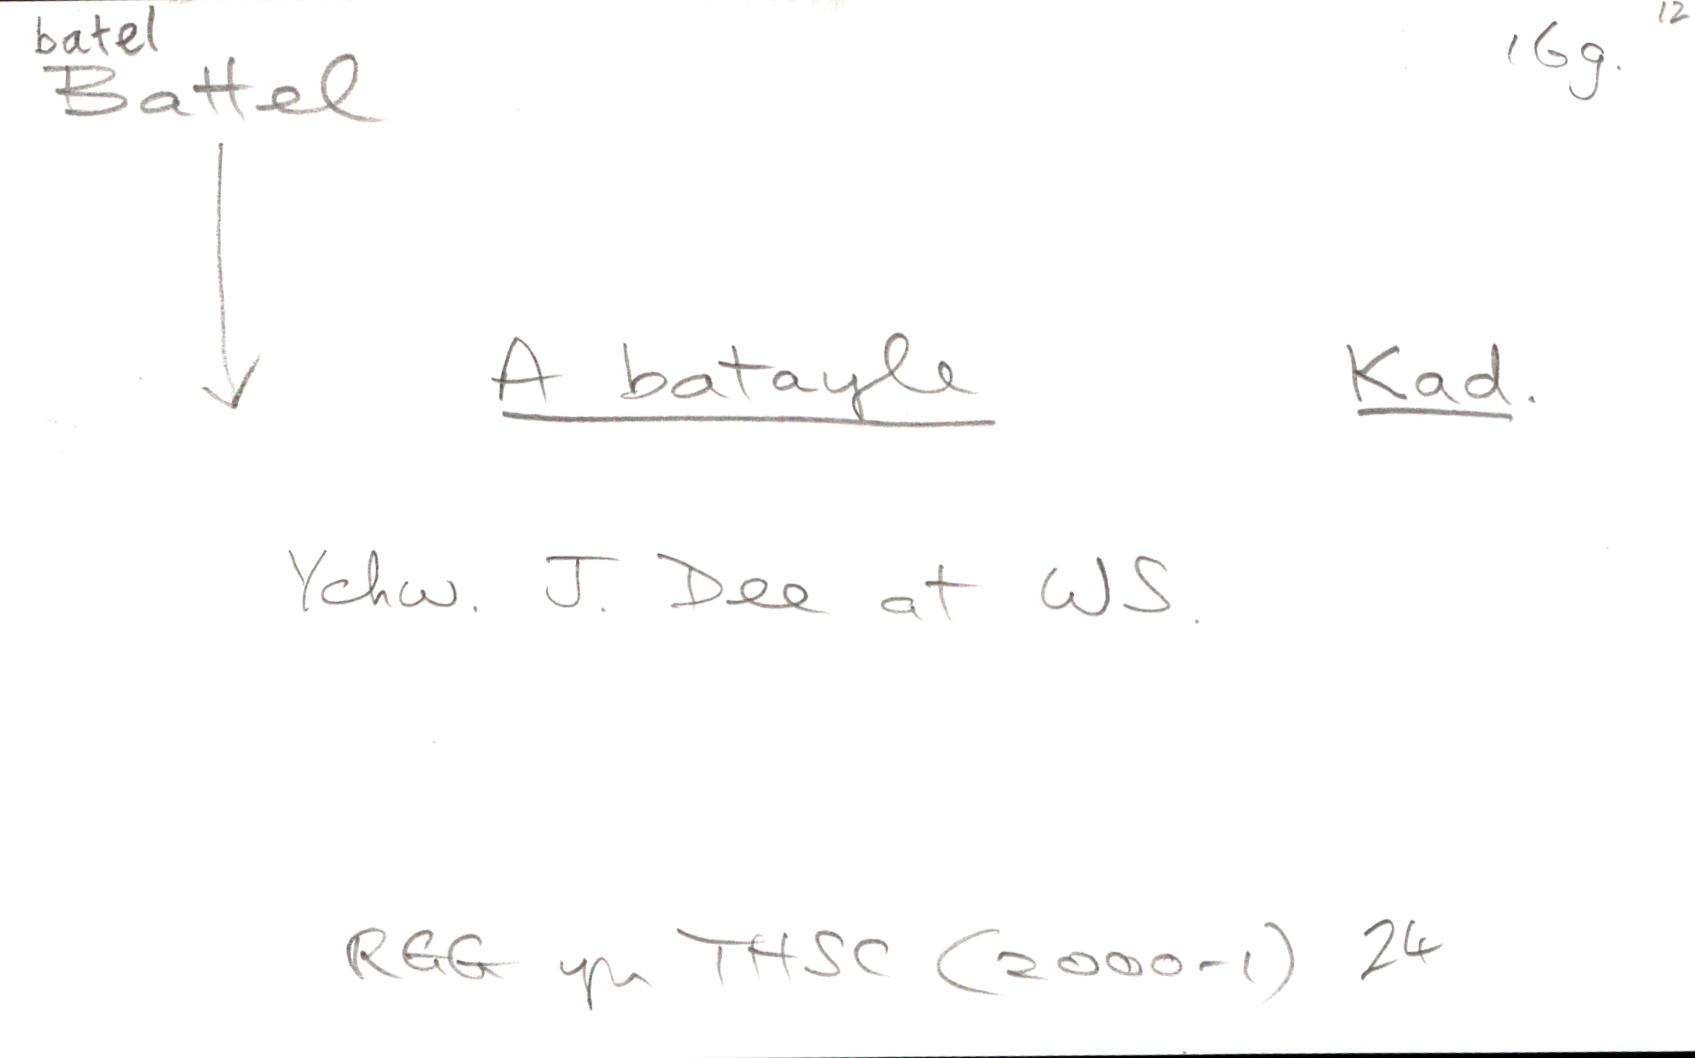 batel
12
Battel
16g.
A batayle Kad.
Ychw. J. Dee at WS.
RGG yn THSC (2000-1) 24